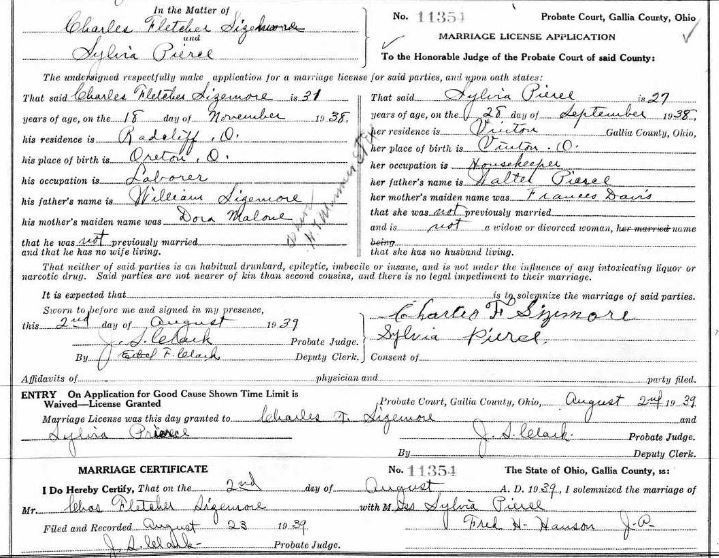 In the Matter of
Charles Fletcher Sizemore
and
Sylvia Pierel
No. 11354 Probate Court, Gallia County, Ohio
MARRIAGE LICENSE APPLICATION
To the Honorable Judge of the Probate Court of said County:
The undersigned respectfully make application for a marriage license for said parties, and upon oath states:
That said Charles Fletcher Sizemore is 31
years of age, on the 18 day of November 1938,
his residence is Radcliff, O.
his place of birth is Oreton, O.
his occupation is Laborer
his father's name is William Sizemore
his mother's maiden name was Dora Malone
that he was not previously married
and that he has no wife living.
That said Sylvia Pierel is 27
years of age, on the 28 day of September 1938,
her residence is Vinton Gallia County, Ohio,
her place of birth is Vinton, O.
her occupation is Housekeeper
her father's name is Walter Pierel
her mother's maiden name was Frances Davis
that she was not previously married
and is not a widow or divorced woman, her married name
being
that she has no husband living.
That neither of said parties is an habitual drunkard, epileptic, imbecile or insane, and is not under the influence of any intoxicating liquor or
narcotic drug. Said parties are not nearer of kin than second cousins, and there is no legal impediment to their marriage.
It is expected that is to solemnize the marriage of said parties.
Sworn to before me and signed in my presence,
this 2nd day of August 1939
J. S. Clark Probate Judge.
By Ethel F. Clark Deputy Clerk.
Charles F Sizemore
Sylvia Pierel.
Consent of
Affidavits of physician and party filed.
ENTRY On Application for Good Cause Shown Time Limit is
Waived—License Granted
Probate Court, Gallia County, Ohio, August 2nd 1939
Marriage License was this day granted to Charles F. Sizemore and
Sylvia
J. S. Clark. Probate Judge.
By Deputy Clerk.
MARRIAGE CERTIFICATE No. 11354 The State of Ohio, Gallia County, ss:
I Do Hereby Certify, That on the 2nd day of August A. D. 1939, I solemnized the marriage of
Mr. Chas Fletcher Sizemore with M Sylvia Pierel
Filed and Recorded August 23 1939. Fred H. Hanson J.P.
J. S. Clark Probate Judge.